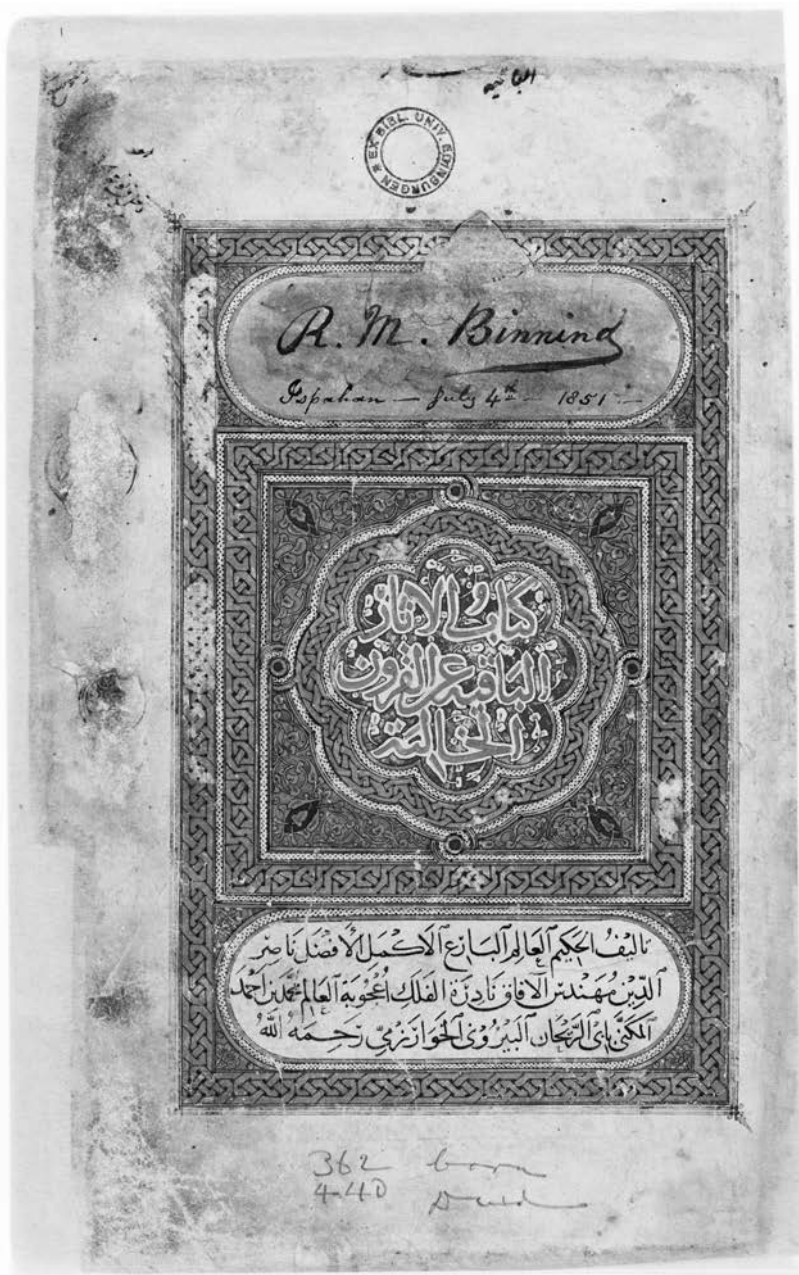 الباقيه
EX BIBL. UNIV. EDINBURGEN
R. M. Binning
Ispahan — July 4th — 1851 —
كتاب الاثار
الباقيه عن القرون
الخالية
تاليف الحكيم العالم البارع الاكمل الافضل ناصر
الدين مهندس الافاق نادرة الفلك اعجوبة العالم محمد بن احمد
المكنى بابى الريحان البيرونى الخوارزمى رحمه الله
362 born
440 Died